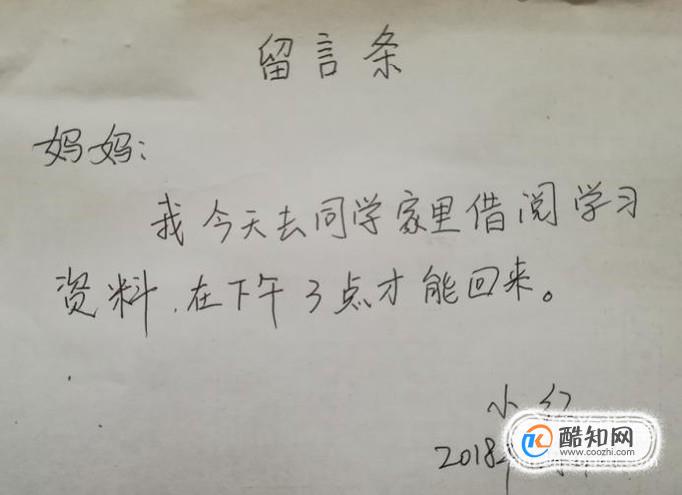 留言条
妈妈:
我今天去同学家里借阅学习
资料,在下午3点才能回来。
小红
2018年
酷知网
www.coozhi.com